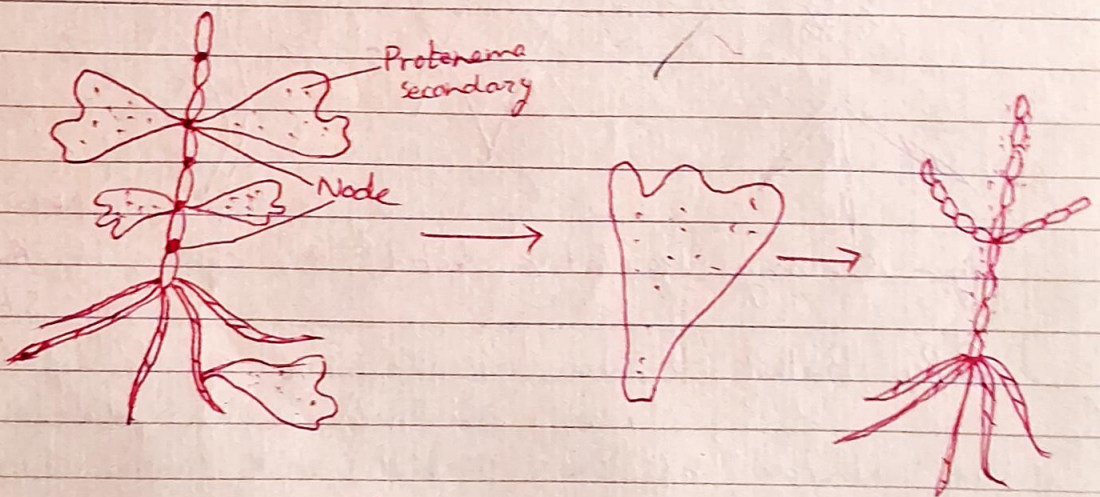 Protenema
secondary
Node